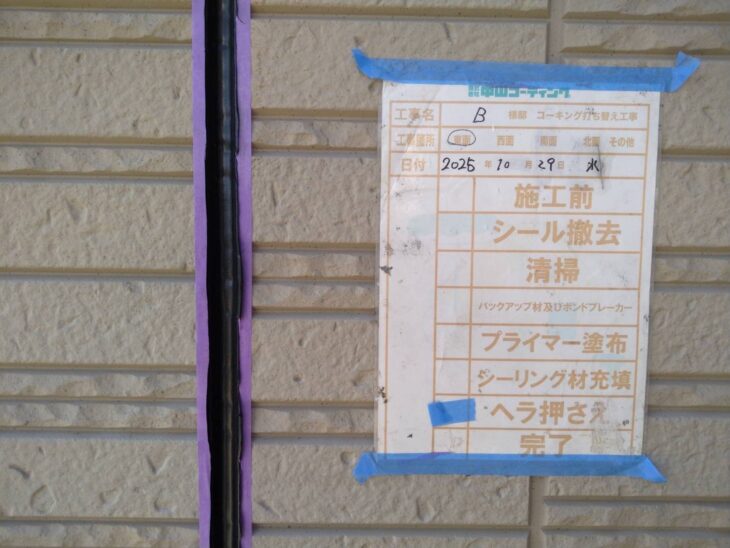 中山コーティング
工事名 B 様邸 コーキング打ち替え工事
工事箇所 東面 西面 南面 北面 その他
日付 2025年10月29日 水
施工前
シール撤去
清掃
バックアップ材及びボンドブレーカー
プライマー塗布
シーリング材充填
ヘラ押さえ
完了